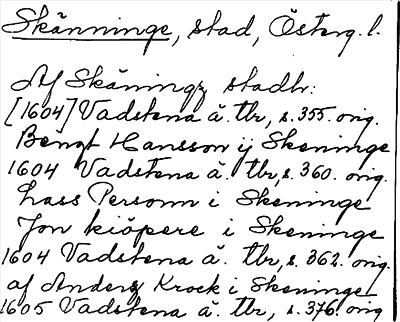 Skänninge, stad, Österg. l.
Af Skäningz stadbr.
[1604] Vadstena ä. tbr, s. 355. orig.
Bengt Hansson ij Skeninge
1604 Vadstena ä. tbr, s. 360. orig.
Lass Personn i Skeninge
Jon kiöpere i Skeninge
1604 Vadstena ä. tbr, s. 362. orig.
af Anderz Krock i Skeninge
1605 Vadstena ä. tbr, s. 376. orig